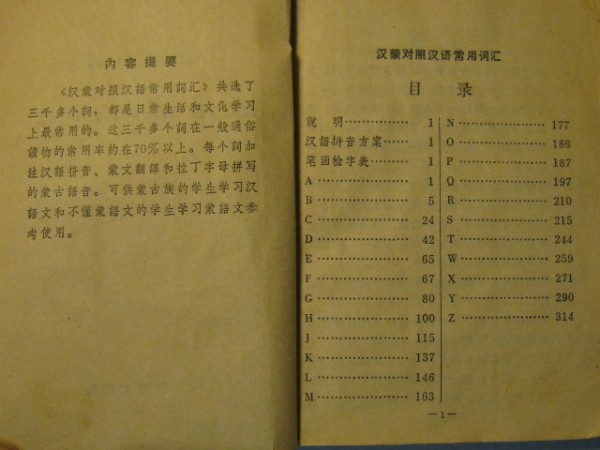 内容提要
《汉蒙对照汉語常用词汇》共选了
三千多个詞，都是日常生活和文化学习
上最常用的。这三千多个詞在一般通俗
讀物的常用率約在70％以上。每个詞加
注汉語拼音、蒙文翻譯和拉丁字母拼写
的蒙古語音。可供蒙古族的学生学习汉
語文和不懂蒙語文的学生学习蒙語文参
考使用。
汉蒙对照汉语常用词汇
目 录
說 明 1
汉語拼音方案 1
笔画检字表 1
A 1
B 5
C 24
D 42
E 65
F 67
G 80
H 100
J 115
K 137
L 146
M 163
N 177
O 186
P 187
Q 197
R 210
S 215
T 244
W 259
X 271
Y 290
Z 314
—1—